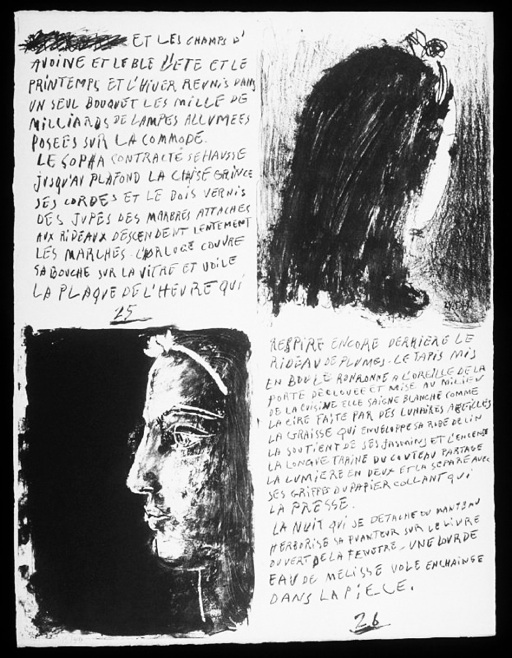 ET LES CHAMPS D'
AVOINE ET LE BLE L'ETE ET LE
PRINTEMPS ET L'HIVER REUNIS DANS
UN SEUL BOUQUET LES MILLE DE
MILLIARDS DE LAMPES ALLUMEES
POSEES SUR LA COMMODE.
LE SOPHA CONTRACTE SE HAUSSE
JUSQU'AU PLAFOND LA CHAISE GRINCE
SES CORDES ET LE BOIS VERNIS
DES JUPES DES MARBRES ATTACHES
AUX RIDEAUX DESCENDENT LENTEMENT
LES MARCHES L'ORLOGE COUVRE
SA BOUCHE SUR LA VITRE ET VOILE
LA PLAQUE DE L'HEURE QUI
25
RESPIRE ENCORE DERRIERE LE
RIDEAU DE PLUMES - LE TAPIS MIS
EN BOULE RONRONNE A L'OREILLE DE LA
PORTE DECLOUEE ET MISE AU MILIEU
DE LA CUISINE ELLE SAIGNE BLANCHE COMME
LA CIRE FAITE PAR DES LUNAIRES ABEILLES
LA GRAISSE QUI ENVELOPPE SA ROBE DE LIN
LA SOUTIENT DE SES JASMINS ET L'ENCENS
LA LONGUE TRAINE DU COUTEAU PARTAGE
LA LUMIERE EN DEUX ET LA SEPARE AVEC
SES GRIFFES DU PAPIER COLLANT QUI
LA PRESSE.
LA NUIT QUI SE DETACHE DU MANTEAU
HERBORISE SA PUANTEUR SUR LE LIVRE
OUVERT DE LA FENETRE - UNE LOURDE
EAU DE MELISSE VOLE ENCHAINEE
DANS LA PIECE.
26